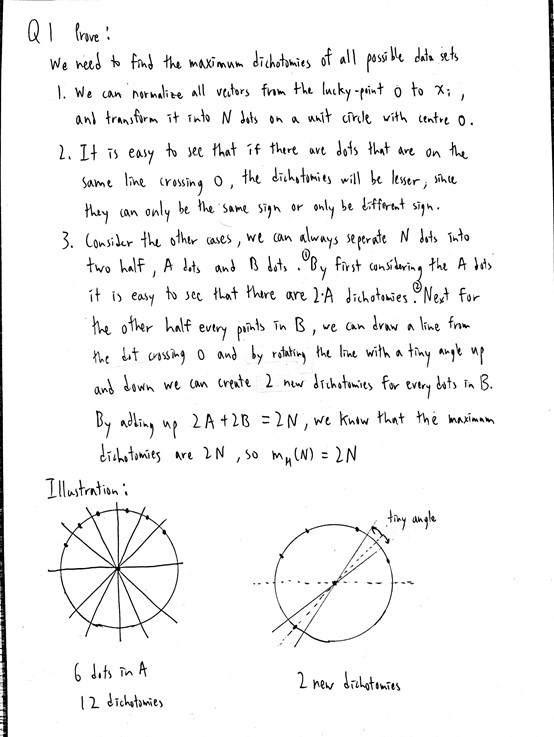 Q1 Prove :
We need to find the maximum dichotomies of all possible data sets
1. We can normalize all vectors from the lucky-point O to xi ,
and transform it into N dots on a unit circle with centre O.
2. It is easy to see that if there are dots that are on the
same line crossing O , the dichotomies will be lesser, since
they can only be the same sign or only be different sign.
3. Consider the other cases, we can always seperate N dots into
two half, A dots and B dots. ①By first considering the A dots
it is easy to see that there are 2·A dichotomies. ②Next for
the other half every points in B, we can draw a line from
the dot crossing O and by rotating the line with a tiny angle up
and down we can create 2 new dichotomies for every dots in B.
By adding up 2A+2B = 2N, we know that the maximum
dichotomies are 2N , so mH(N) = 2N
Illustration :
tiny angle
6 dots in A
12 dichotomies
2 new dichotomies